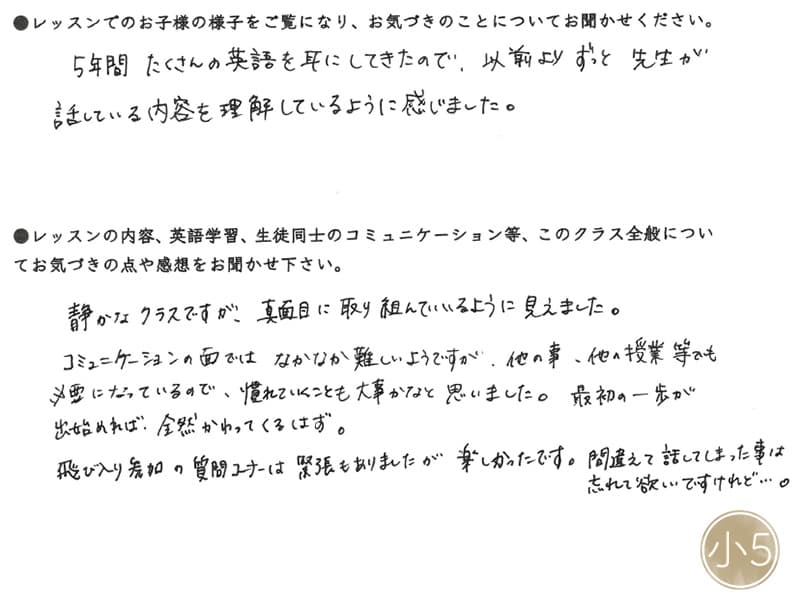 ●レッスンでのお子様の様子をご覧になり、お気づきのことについてお聞かせください。
5年間 たくさんの英語を耳にしてきたので、以前より ずっと 先生が
話している内容を理解しているように感じました。
●レッスンの内容、英語学習、生徒同士のコミュニケーション等、このクラス全般につい
てお気づきの点や感想をお聞かせ下さい。
静かなクラスですが、真面目に取り組んでいるように見えました。
コミュニケーションの面では なかなか難しいようですが、他の事、他の授業等でも
必要になっているので、慣れていくことも大事かなと思いました。最初の一歩が
出始めれば 全然かわってくるはず。
飛び入り参加の質問コーナーは緊張もありましたが 楽しかったです。間違えて話してしまった事は
忘れて欲しいですけれど…。
小5